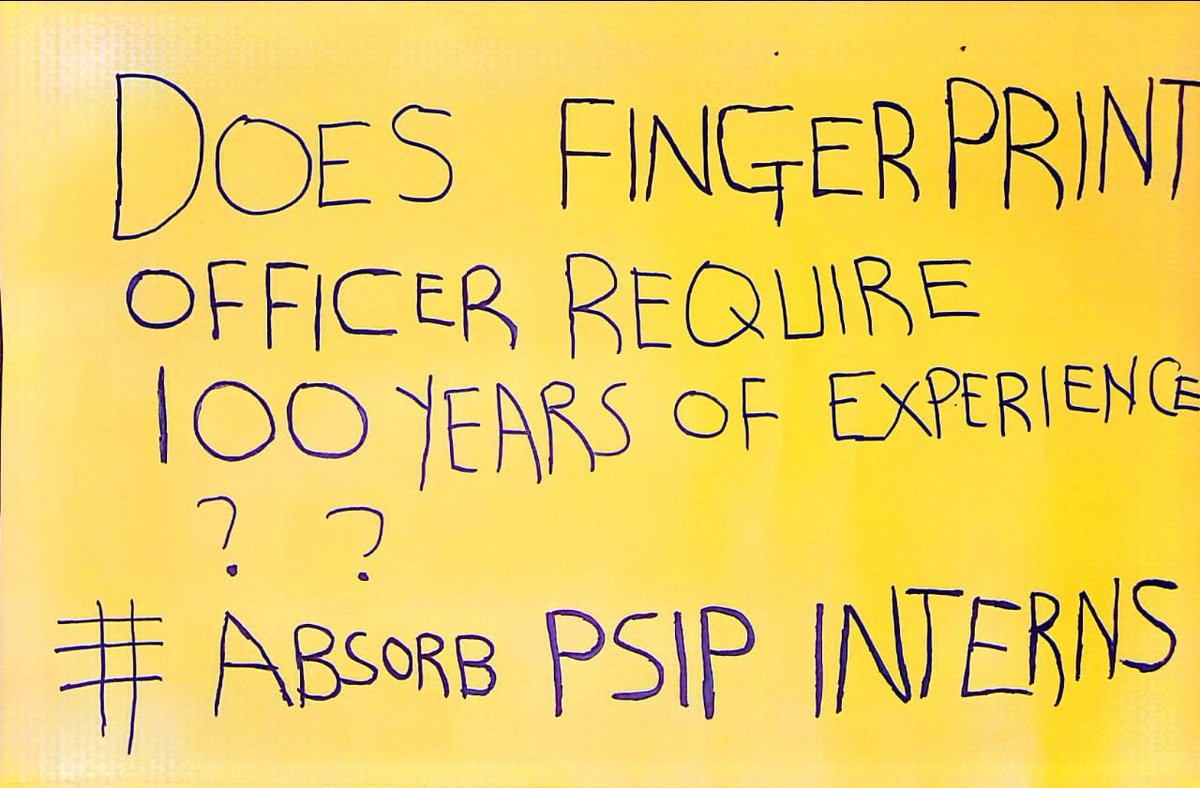 DOES FINGERPRINT
OFFICER REQUIRE
100 YEARS OF EXPERIENCE
? ?
# ABSORB PSIP INTERNS